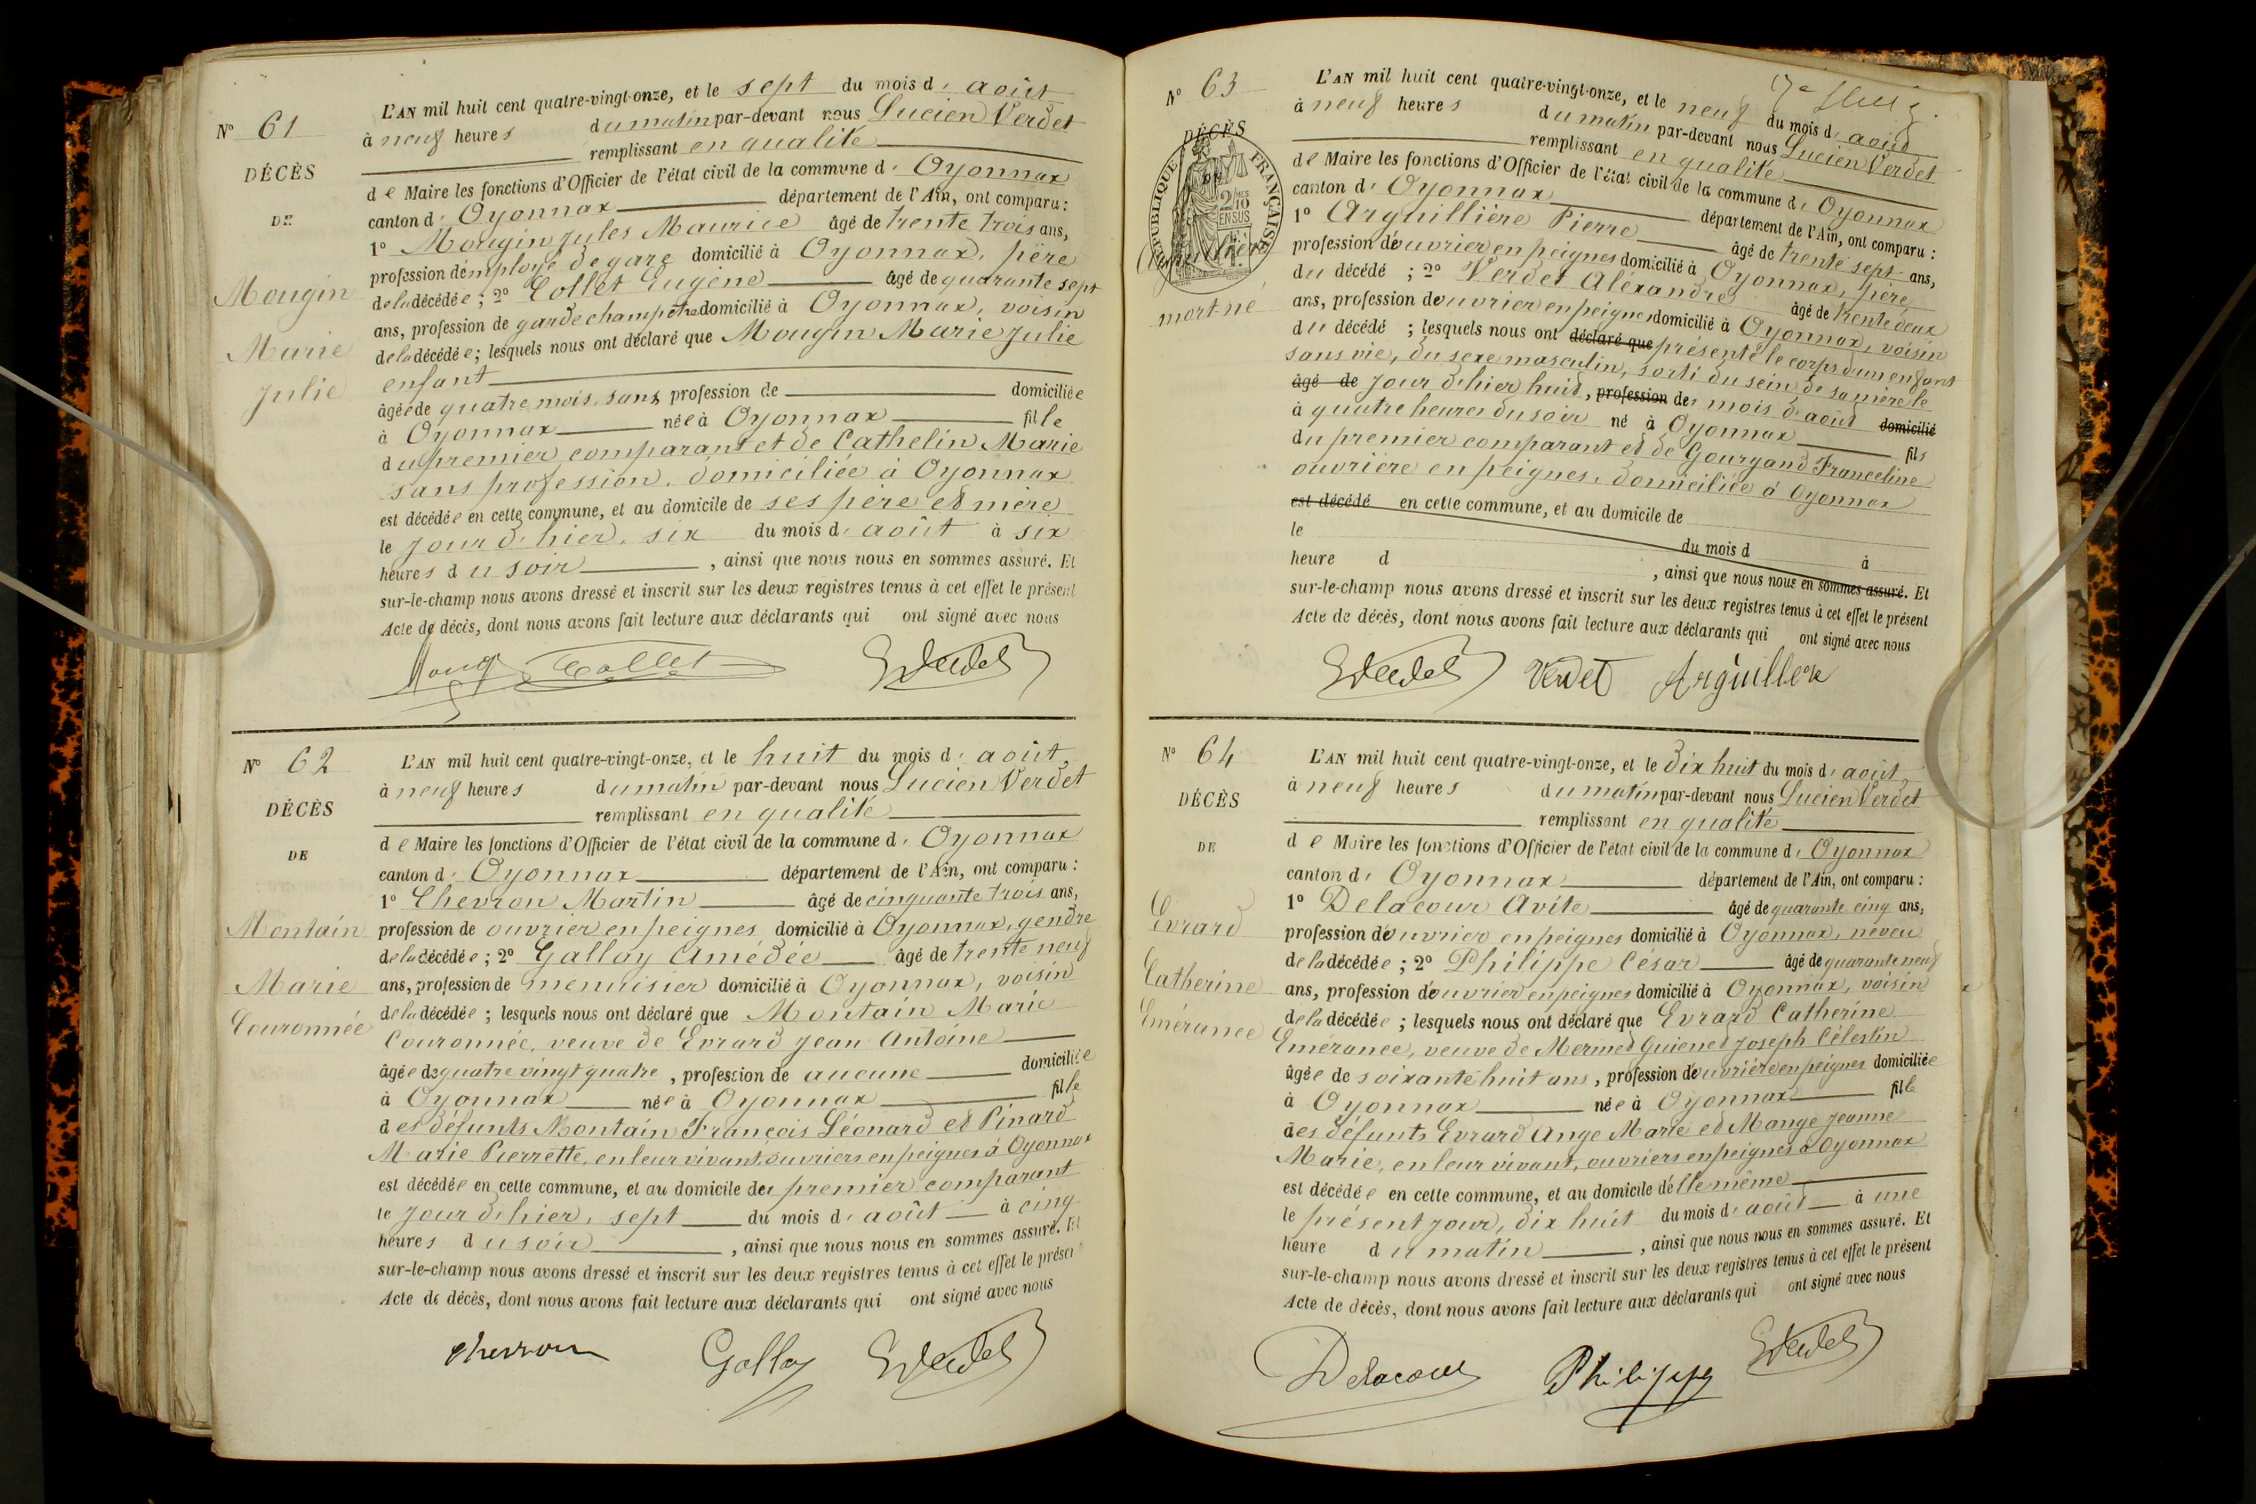 N° 61
DÉCÈS
DE
Mougin
Marie
Julie
L'AN mil huit cent quatre-vingt-onze, et le sept du mois d' août
à neuf heures du matin par-devant nous Lucien Verdet
remplissant en qualité
de Maire les fonctions d'Officier de l'état civil de la commune d' Oyonnax
canton d' Oyonnax département de l'Ain, ont comparu :
1° Mougin Jules Maurice âgé de trente trois ans,
profession d'employé de gare domicilié à Oyonnax, père
de la décédée ; 2° Collet Eugène âgé de quarante sept
ans, profession de garde champêtre domicilié à Oyonnax, voisin
de la décédée ; lesquels nous ont déclaré que Mougin Marie Julie
enfant
âgée de quatre mois, sans profession de domiciliée
à Oyonnax née à Oyonnax fille
du premier comparant et de Cathelin Marie
sans profession, domiciliée à Oyonnax
est décédée en cette commune, et au domicile de ses père et mère
le jour d'hier, six du mois d' août à six
heures du soir, ainsi que nous nous en sommes assuré. Et
sur-le-champ nous avons dressé et inscrit sur les deux registres tenus à cet effet le présent
Acte de décès, dont nous avons fait lecture aux déclarants qui ont signé avec nous
Collet
N° 62
DÉCÈS
DE
Montain
Marie
Couronnée
L'AN mil huit cent quatre-vingt-onze, et le huit du mois d' août,
à neuf heures du matin par-devant nous Lucien Verdet
remplissant en qualité
de Maire les fonctions d'Officier de l'état civil de la commune d' Oyonnax
canton d' Oyonnax département de l'Ain, ont comparu :
1° Chevron Martin âgé de cinquante trois ans,
profession de ouvrier en peignes domicilié à Oyonnax, gendre
de la décédée ; 2° Gallay Amédée âgé de trente neuf
ans, profession de menuisier domicilié à Oyonnax, voisin
de la décédée ; lesquels nous ont déclaré que Montain Marie
Couronnée, veuve de Evrard Jean Antoine
âgée de quatre vingt quatre, profession de aucune domiciliée
à Oyonnax née à Oyonnax fille
des défunts Montain François Léonard et Pinard
Marie Pierrette, en leur vivant, ouvriers en peignes à Oyonnax
est décédée en cette commune, et au domicile du premier comparant
le jour d'hier, sept du mois d' août à cinq
heures du soir, ainsi que nous nous en sommes assuré. Et
sur-le-champ nous avons dressé et inscrit sur les deux registres tenus à cet effet le présent
Acte de décès, dont nous avons fait lecture aux déclarants qui ont signé avec nous
Chevron Gallay
N° 63
DÉCÈS
RÉPUBLIQUE FRANÇAISE
2/10 EN SUS
mort-né
L'AN mil huit cent quatre-vingt-onze, et le neuf du mois d' août
à neuf heures du matin par-devant nous Lucien Verdet
remplissant en qualité
de Maire les fonctions d'Officier de l'état civil de la commune d' Oyonnax
canton d' Oyonnax département de l'Ain, ont comparu :
1° Arguillière Pierre âgé de trente sept ans,
profession d'ouvrier en peignes domicilié à Oyonnax, père
du décédé ; 2° Verdet Aléxandre âgé de trente deux
ans, profession d'ouvrier en peignes domicilié à Oyonnax, voisin
du décédé ; lesquels nous ont déclaré que présenté le corps d'un enfant
sans vie, du sexe masculin, sorti du sein de sa mère le
âgé de jour d'hier huit, profession de mois d'août domicilié
à quatre heures du soir né à Oyonnax fils
du premier comparant et de Gourgand Franceline
ouvrière en peignes, domiciliée à Oyonnax
est décédé en cette commune, et au domicile de
le du mois d à
heure d , ainsi que nous nous en sommes assuré. Et
sur-le-champ nous avons dressé et inscrit sur les deux registres tenus à cet effet le présent
Acte de décès, dont nous avons fait lecture aux déclarants qui ont signé avec nous
Verdet
N° 64
DÉCÈS
DE
Evrard
Catherine
Eméranee
L'AN mil huit cent quatre-vingt-onze, et le dix huit du mois d' août
à neuf heures du matin par-devant nous Lucien Verdet
remplissant en qualité
de Maire les fonctions d'Officier de l'état civil de la commune d' Oyonnax
canton d' Oyonnax département de l'Ain, ont comparu :
1° Delacour Avite âgé de quarante cinq ans,
profession d'ouvrier en peignes domicilié à Oyonnax, neveu
de la décédée ; 2° Philippe César âgé de quarante neuf
ans, profession d'ouvrier en peignes domicilié à Oyonnax, voisin
de la décédée ; lesquels nous ont déclaré que Evrard Catherine
Eméranee, veuve de Mermet Guienet Joseph Célestin
âgée de soixante huit ans, profession d'ouvrière en peignes domiciliée
à Oyonnax née à Oyonnax fille
des défunts Evrard Ange Marie et Mange Jeanne
Marie, en leur vivant, ouvriers en peignes à Oyonnax
est décédée en cette commune, et au domicile d'elle même
le présent jour, dix huit du mois d' août à une
heure du matin, ainsi que nous nous en sommes assuré. Et
sur-le-champ nous avons dressé et inscrit sur les deux registres tenus à cet effet le présent
Acte de décès, dont nous avons fait lecture aux déclarants qui ont signé avec nous
Delacour Philippe